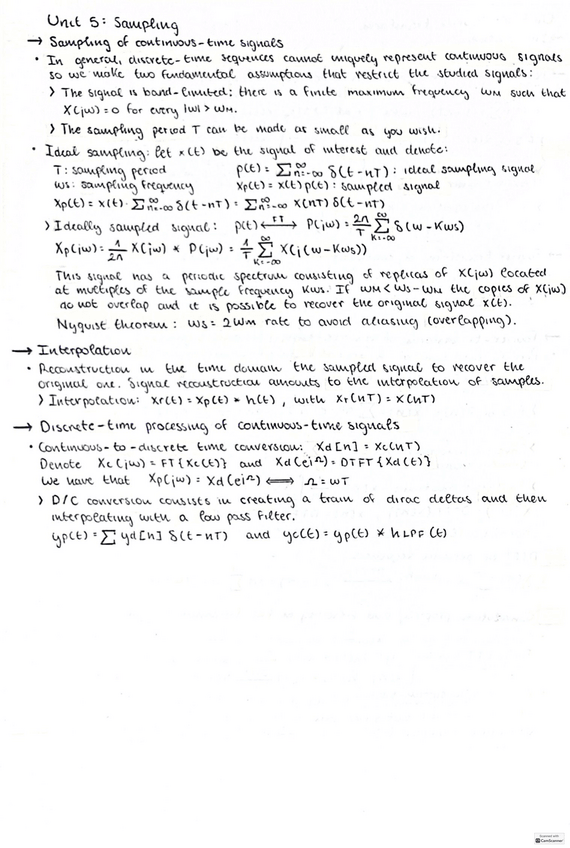 Unit 5: Sampling
→ Sampling of continuous-time signals
• In general, discrete-time sequences cannot uniquely represent continuous signals
so we make two fundamental assumptions that restrict the studied signals:
> The signal is band-limited: there is a finite maximum frequency ωM such that
X(jω)=0 for every |ω| > ωM.
> The sampling period T can be made as small as you wish.
• Ideal sampling: let x(t) be the signal of interest and denote:
T: sampling period p(t) = ∑_{n=-∞}^{∞} δ(t-nT): ideal sampling signal
ωs: sampling frequency xp(t) = x(t)p(t): sampled signal
xp(t) = x(t) · ∑_{n=-∞}^{∞} δ(t-nT) = ∑_{n=-∞}^{∞} x(nT) δ(t-nT)
> Ideally sampled signal: p(t) ←FT→ P(jω) = 2π/T ∑_{k=-∞}^{∞} δ(ω-kωs)
Xp(jω) = 1/2π X(jω) * P(jω) = 1/T ∑_{k=-∞}^{∞} X(j(ω-kωs))
This signal has a periodic spectrum consisting of replicas of X(jω) located
at multiples of the sample frequency kωs. If ωM < ωs-ωM the copies of X(jω)
do not overlap and it is possible to recover the original signal x(t).
Nyquist theorem: ωs = 2ωm rate to avoid aliasing (overlapping).
→ Interpolation
• Reconstruction in the time domain the sampled signal to recover the
original one. Signal reconstruction amounts to the interpolation of samples.
> Interpolation: xr(t) = xp(t) * h(t), with xr(nT) = x(nT)
→ Discrete-time processing of continuous-time signals
• Continuous-to-discrete time conversion: xd[n] = xc(nT)
Denote Xc(jω) = FT{xc(t)} and Xd(e^jΩ) = DTFT{xd(t)}
We have that Xp(jω) = Xd(e^jΩ) ⟺ Ω = ωT
> D/C conversion consists in creating a train of dirac deltas and then
interpolating with a low pass filter.
yp(t) = ∑ yd[n] δ(t-nT) and yc(t) = yp(t) * hLPF(t)
Scanned with
CamScanner